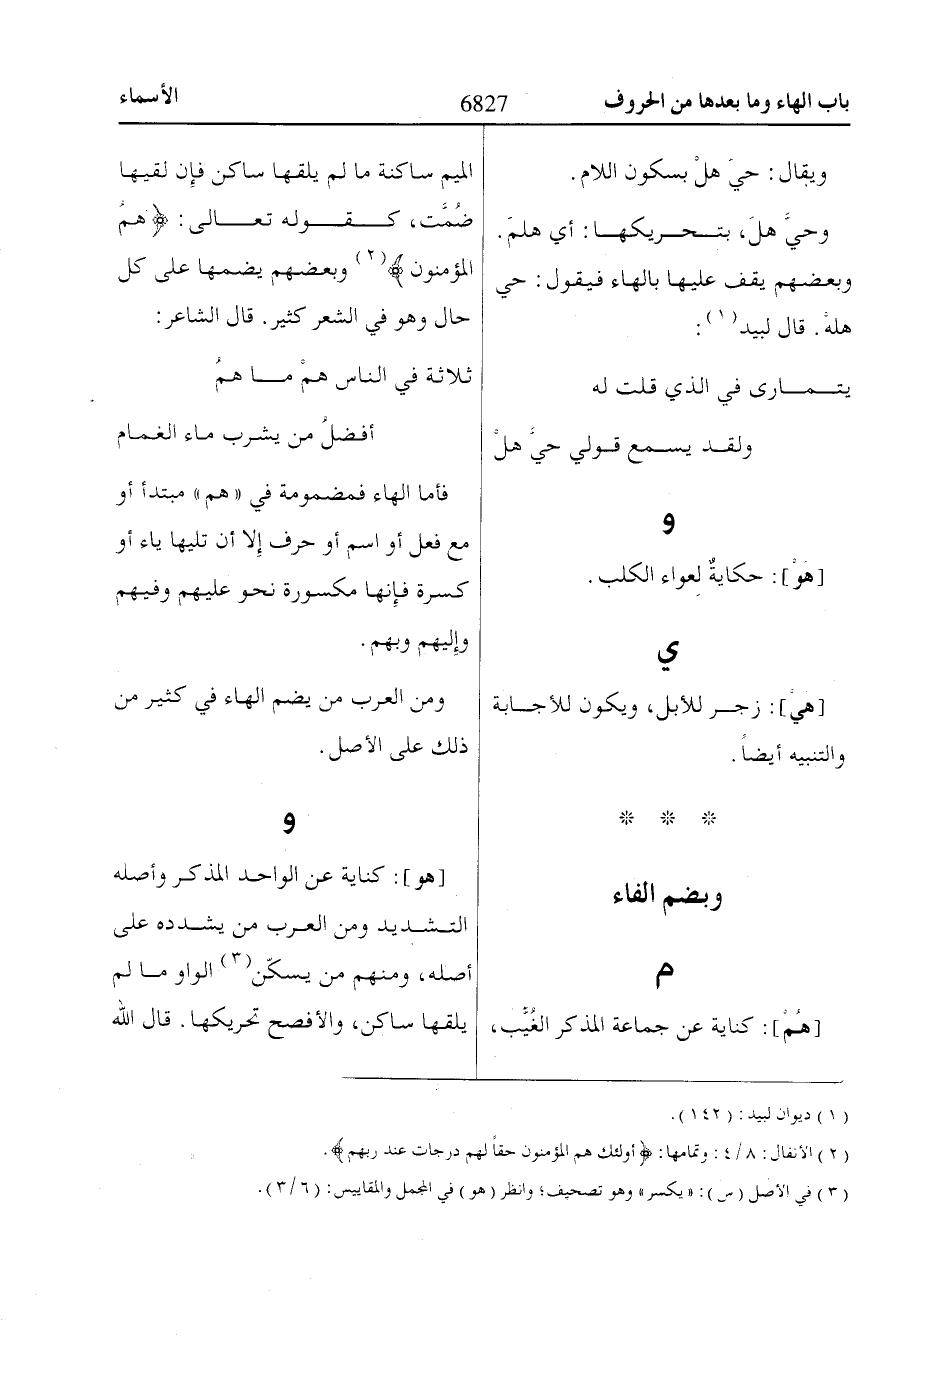 باب الهاء وما بعدها من الحروف 6827 الأسماء
ويقال: حيَ هلْ بسكون اللام.
وحيَّ هلَ، بتحريكها: أي هلمَ.
وبعضهم يقف عليها بالهاء فيقول: حي
هلهْ. قال لبيد(١):
يتمارى في الذي قلت له
ولقد يسمع قولي حيَّ هلْ
و
[هَوْ]: حكايةٌ لعواء الكلب.
ي
[هيْ]: زجر للأبل، ويكون للأجابة
والتنبيه أيضاً.
* * *
وبضم الفاء
م
[هُمْ]: كناية عن جماعة المذكر الغُيَّب،
الميم ساكنة ما لم يلقها ساكن فإن لقيها
ضُمَّت، كقوله تعالى: ﴿همُ
المؤمنون﴾(٢) وبعضهم يضمها على كل
حال وهو في الشعر كثير. قال الشاعر:
ثلاثة في الناس همْ ما همُ
أفضلُ من يشرب ماء الغمام
فأما الهاء فمضمومة في «هم» مبتدأ أو
مع فعل أو اسم أو حرف إلا أن تليها ياء أو
كسرة فإنها مكسورة نحو عليهم وفيهم
وإليهم وبهم.
ومن العرب من يضم الهاء في كثير من
ذلك على الأصل.
و
[هو]: كناية عن الواحد المذكر وأصله
التشديد ومن العرب من يشدده على
أصله، ومنهم من يسكّن(٣) الواو ما لم
يلقها ساكن، والأفصح تحريكها. قال الله
(١) ديوان لبيد: (١٤٢).
(٢) الأنفال: ٤/٨: وتمامها: ﴿أولئك هم المؤمنون حقاً لهم درجات عند ربهم﴾.
(٣) في الأصل (س): «يكسر» وهو تصحيف؛ وانظر (هو) في المجمل والمقاييس: (٣/٦).